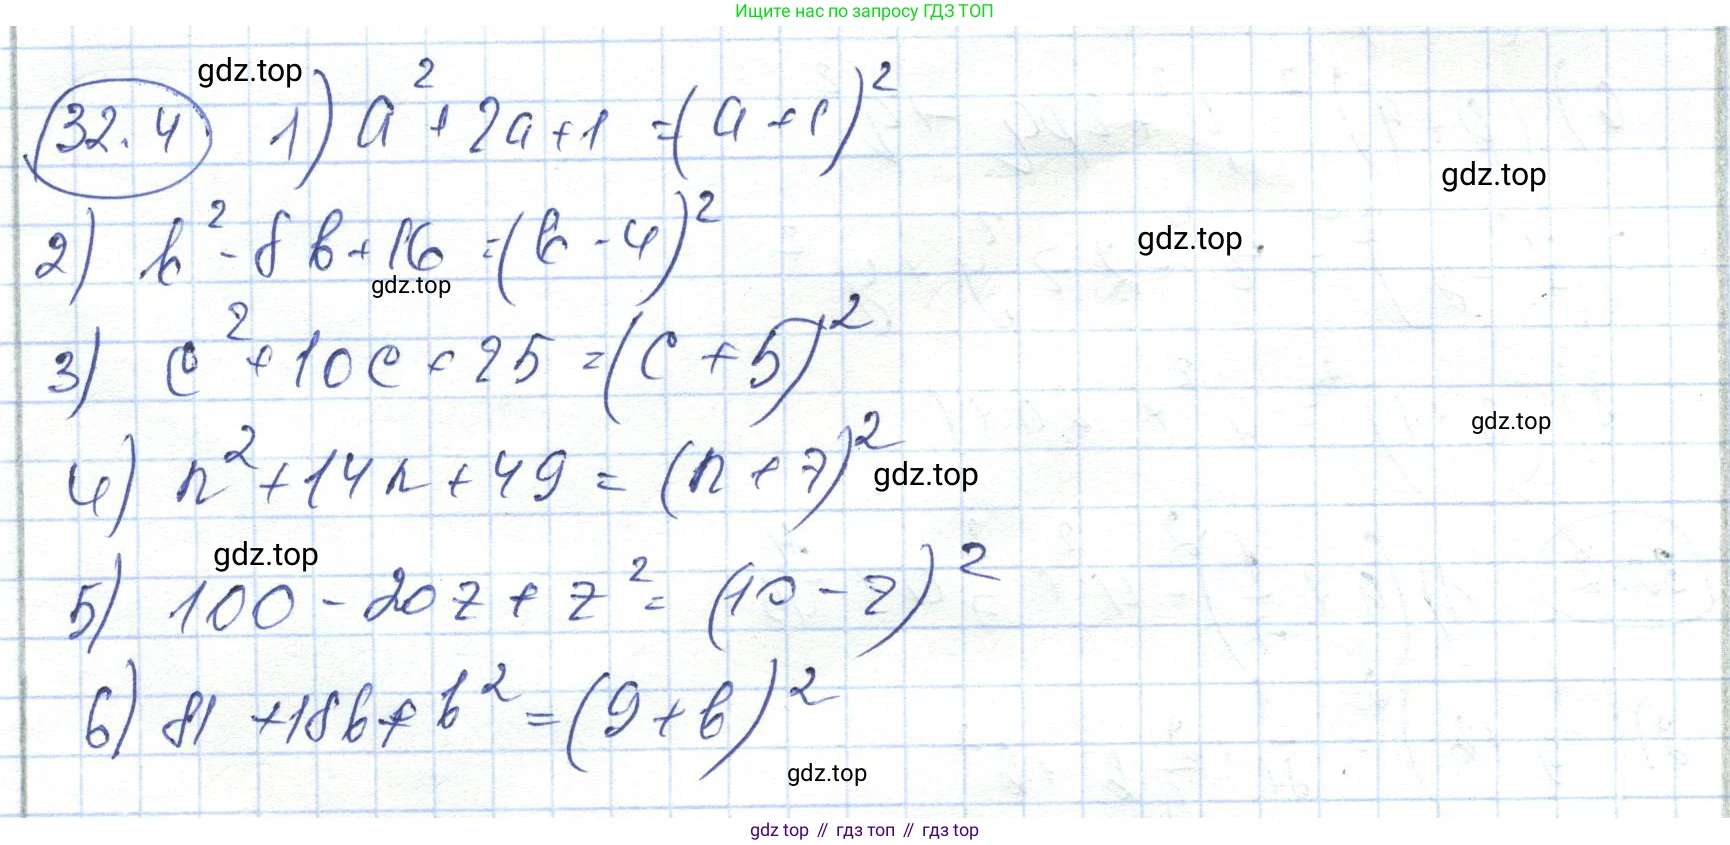 Ищите нас по запросу ГДЗ ТОП
gdz.top
32.4 1) a² + 2a + 1 = (a + 1)²
gdz.top
2) b² - 8b + 16 = (b - 4)²
gdz.top
gdz.top
3) c² + 10c + 25 = (c + 5)²
gdz.top
4) n² + 14n + 49 = (n + 7)²
gdz.top
gdz.top
5) 100 - 20z + z² = (10 - z)²
6) 81 + 18b + b² = (9 + b)²
gdz.top
gdz top // гдз топ // гдз top